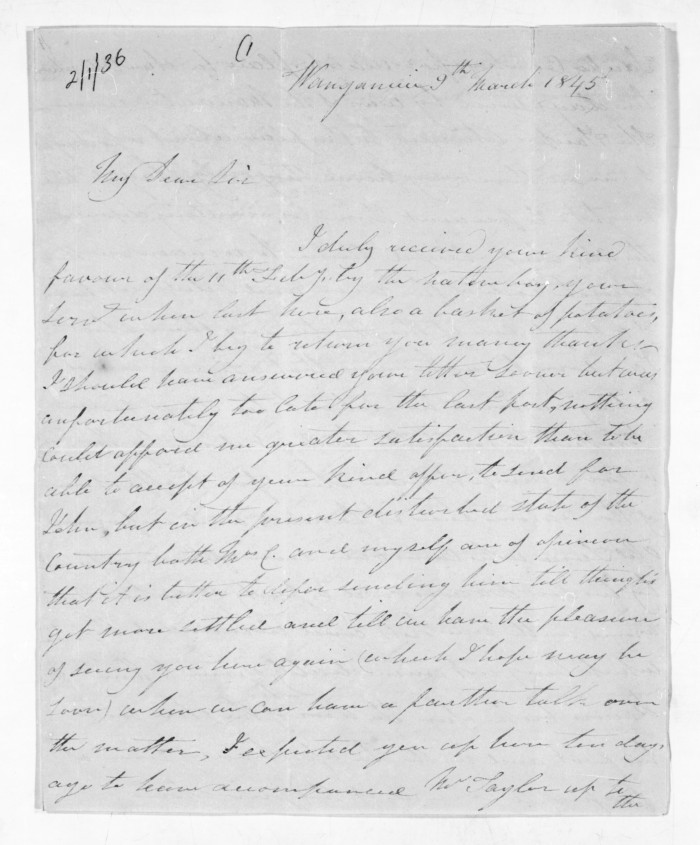 2/1/36
(1
Wanganui 9th March 1845
My Dear Sir
I duly received your kind
favour of the 11th Feby by the native boy, your
Servt when last here, also a basket of potatoes,
for which I beg to return you many thanks,
I should have answered your letter sooner but was
unfortunately too late for the last post, nothing
could afford me greater satisfaction than to be
able to accept of your kind offer, to send for
John, but in the present disturbed state of the
Country both Mrs C. and myself are of opinion
that it is better to defer sending him till things
get more settled and till we have the pleasure
of seeing you here again (which I hope may be
soon) when we can have a farther talk over
the matter, I expected you up here ten days
ago to have accompanied Mr Taylor up to
the